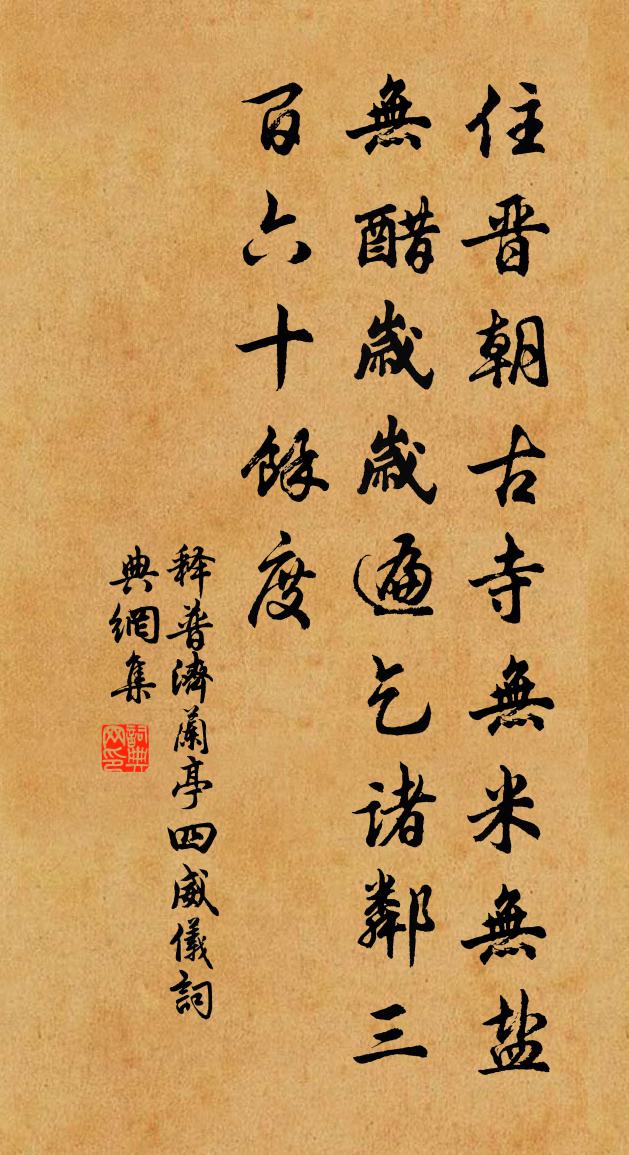 住晋朝古寺無米無盐
無醋歲歲遍乞諸鄰三
百六十餘度
释普濟蘭亭四威儀詞
典網集
詞典網印